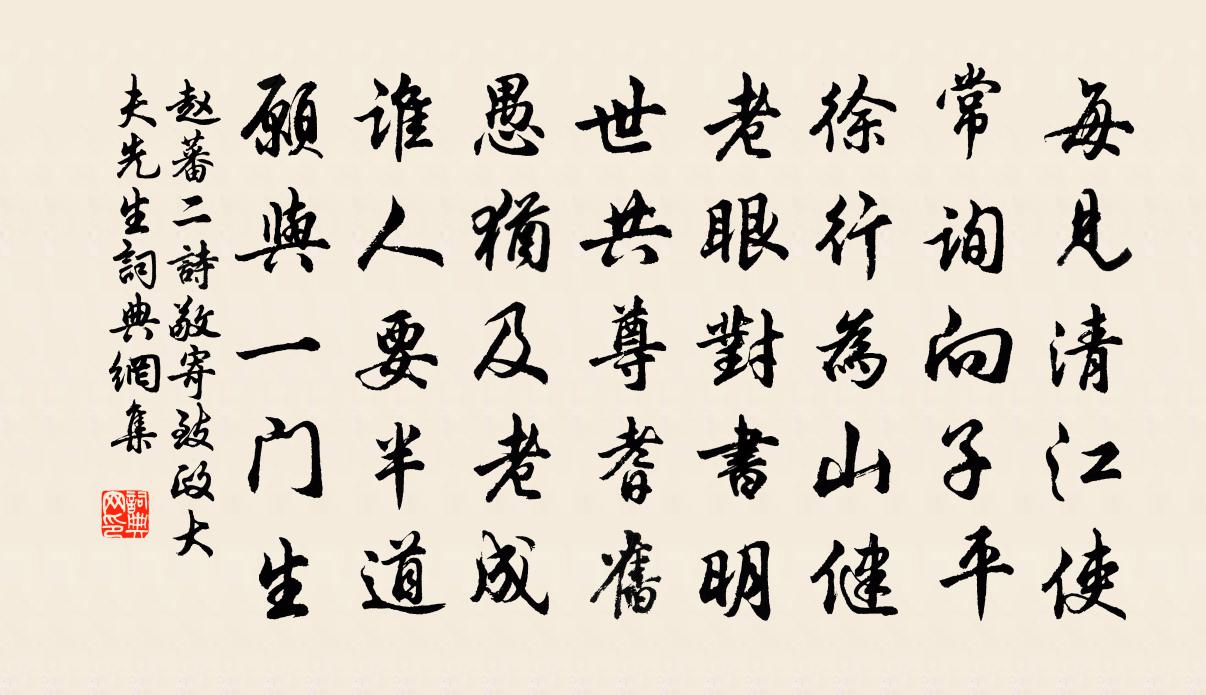 每見清江使
常詢向子平
徐行為山健
老眼對書明
世共尊耆舊
愚猶及老成
誰人要半道
願與一门生
赵蕃二詩敬寄致政大
夫先生詞典網集
詞典
网印